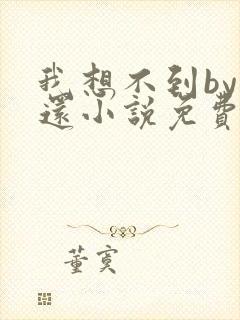 我想不到by
還小說免費
董寞